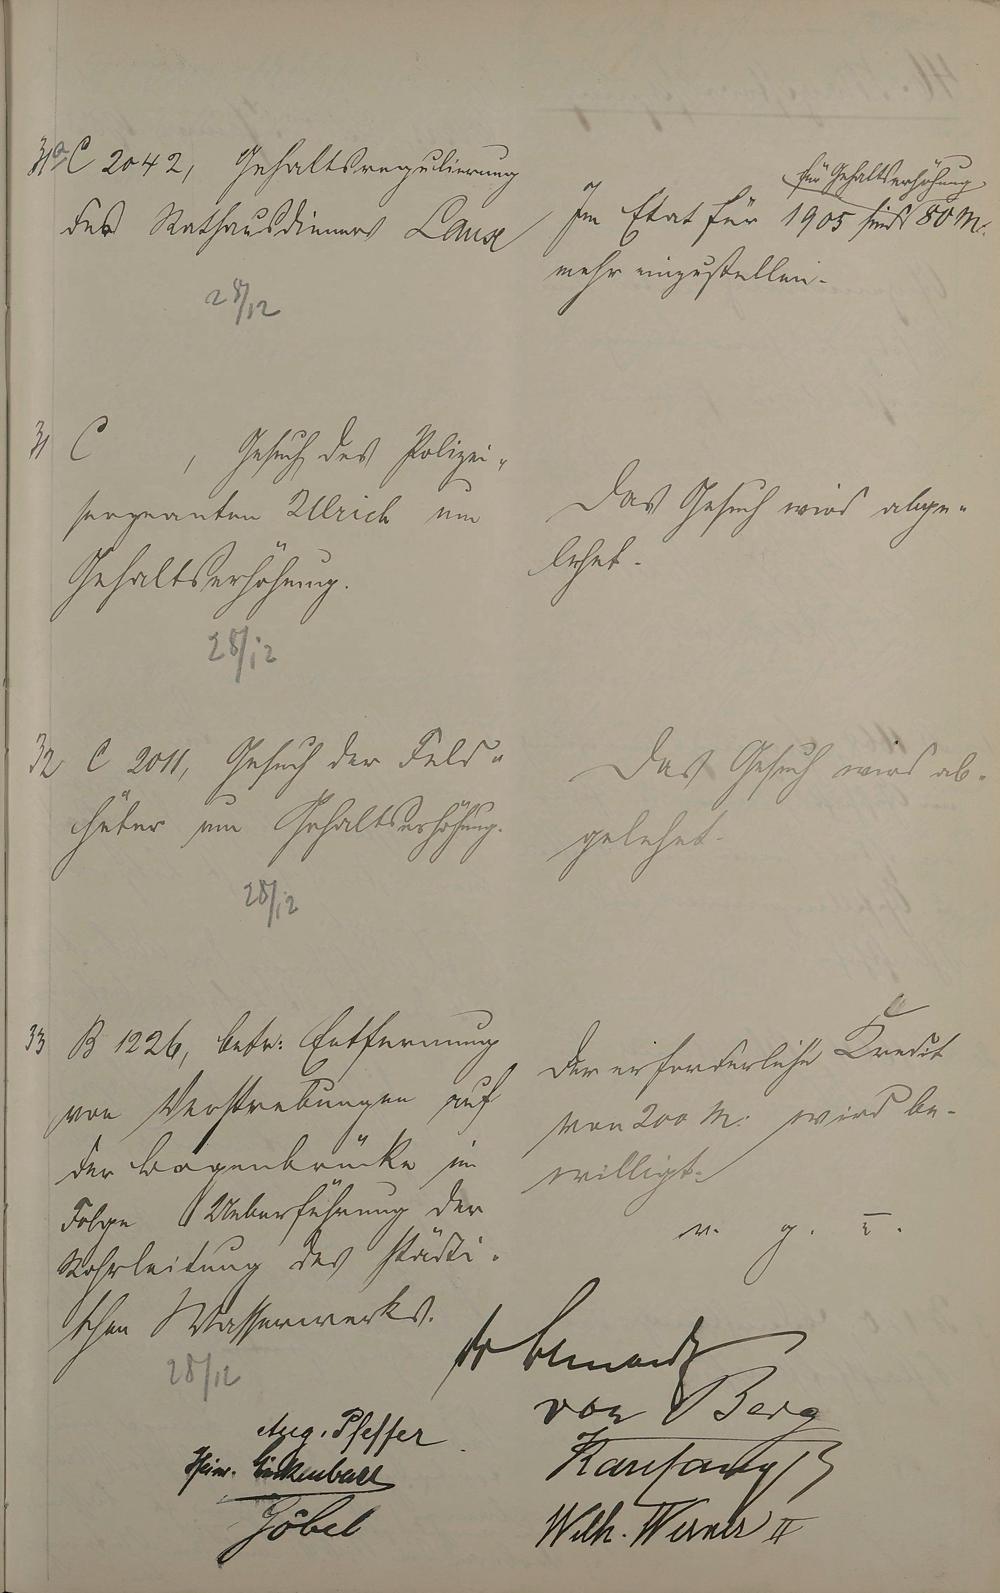 31a C 2042, Gehaltsregulierung
des Rathausdieners Laux
28/12
für Gehaltserhöhung
Im Etat für 1905 sind 50 M.
mehr einzustellen.
31 C , Gesuch des Polizei-
sergeanten Ullrich um
Gehaltserhöhung.
28/12
Das Gesuch wird abge-
lehnt.
32 C 2011, Gesuch der Feld-
hüter um Gehaltserhöhung.
28/12
Das Gesuch wird ab-
gelehnt.
33 B 1226, betr: Entfernung
von Verstrebungen auf
der Bogenbrücke in
Folge Ueberführung der
Rohrleitung des städti-
schen Wasserwerks.
28/12
Der erforderliche Kredit
von 200 M. wird be-
willigt.
v. g. u.
von Berg
Aug. Pfeffer
Heinr.
Göbel
Wilh. Werner II